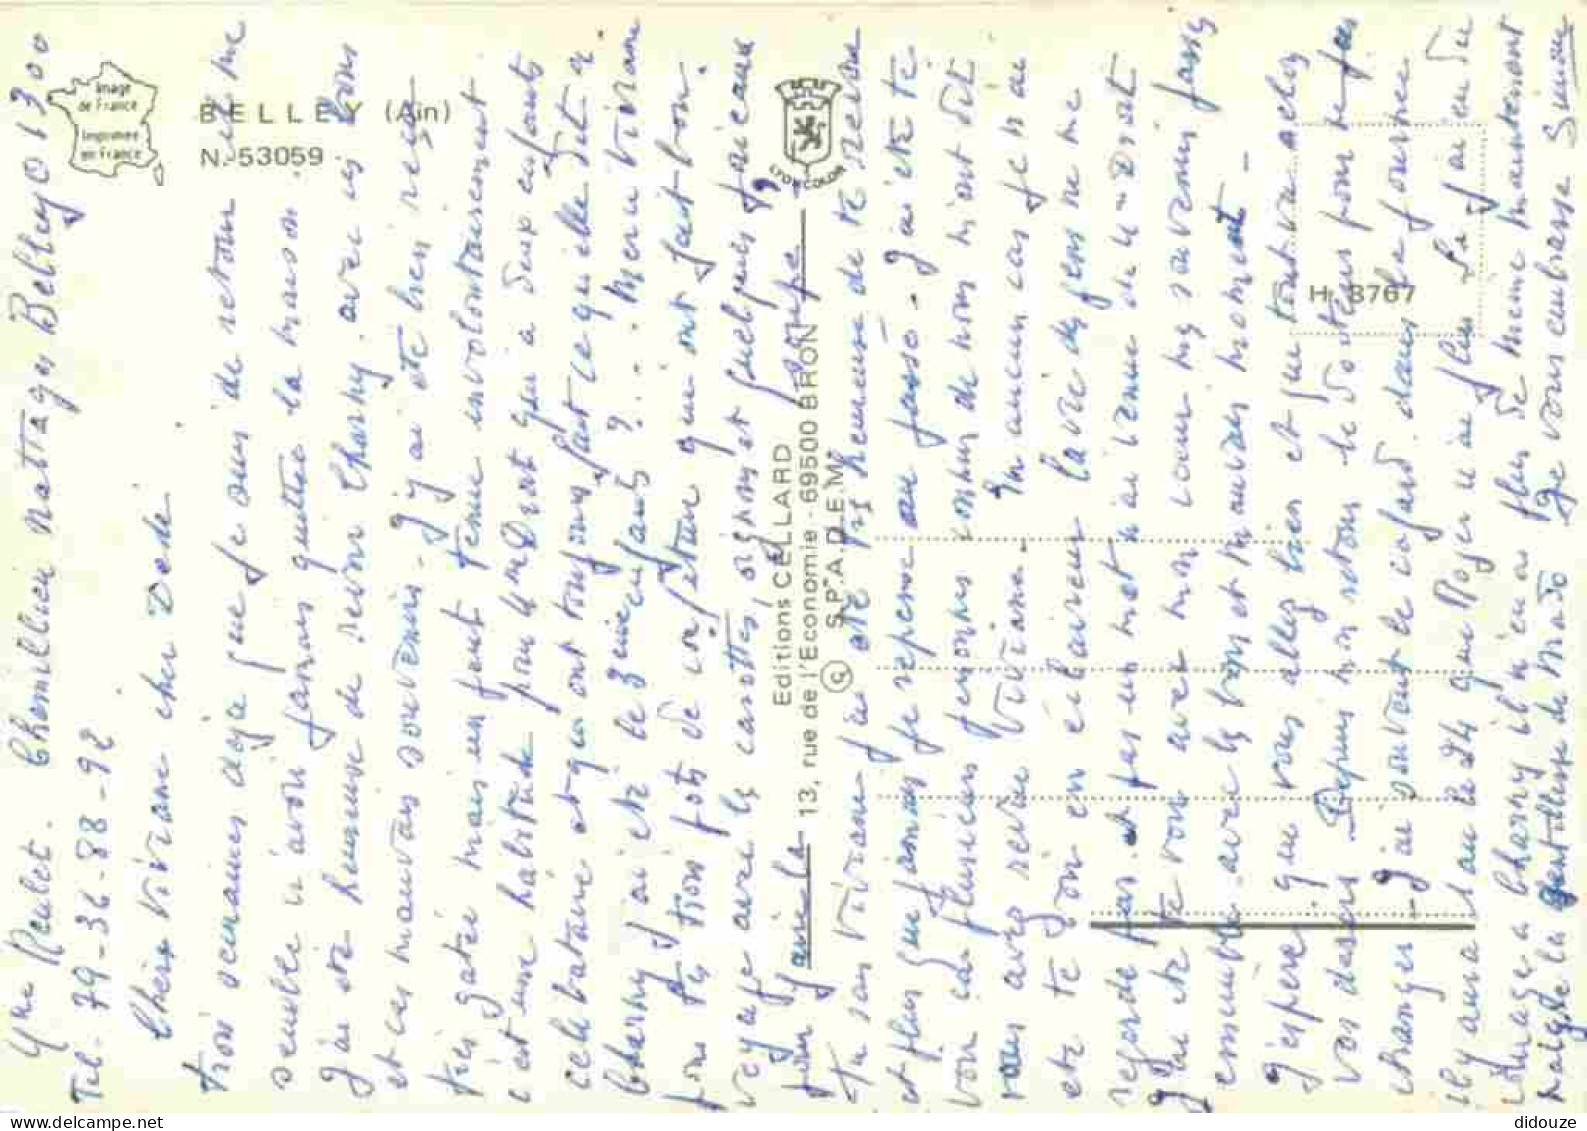 Image
de France
Imprimée
en France
BELLEY (Ain)
N. 53059
LYONCOLOR
Editions CELLARD
13, rue de l'Economie - 69500 BRON
S.P.A.D.E.M.
H 3767
Chemillieu nattages Belley 01300
Tel. 79-36-88-92
Chère Viviane cher Dédé
trois semaines déjà que je suis de retour il me
semble n'avoir jamais quitté la maison
J'ai été heureuse de revoir Charny. avec ces bons
et ces mauvais souvenirs. J'y ai été bien reçu
très gatée mais un peut tenue involontairement
c'est une habitude pour qui a deux enfants
célibataire et qui ont toujours fait ce qu'elle dit a
Charny j'ai été le 3ème enfants ?.... Merci Viviane
pour tes trois pots de confiture qui ont fait bon.
voyage avec les carottes, oignons et quelques poireaux
pour faire la soupe
Tu sais Viviane j'ai été très heureuse de te revoir
et plus que jamais je repense au passé. J'ai été te
voir car plusieurs personnes connus de nous m'ont dit
vous avez revu Viviane. En aucun cas je n'ai
été te voir en éclaireur la vie des gens ne me
regarde pas et pas un mot n'ai venue de
que été te voir avec mon coeur mes souvenirs passés
ensemble avec les bons et mauvais moment -
J'espère que vous allez bien et que tout va selon
vos désirs Depuis mon retour le Docteur pour me faire
changer - J'ai souvent le cafard. dans la journée
il y aura lan le 24 que Roger n'ai plus là j'ai eu du
courage a Charny il n'en ai plus de même maintenant
malgré la gentillesse de Mado Je vous embrasse Simone